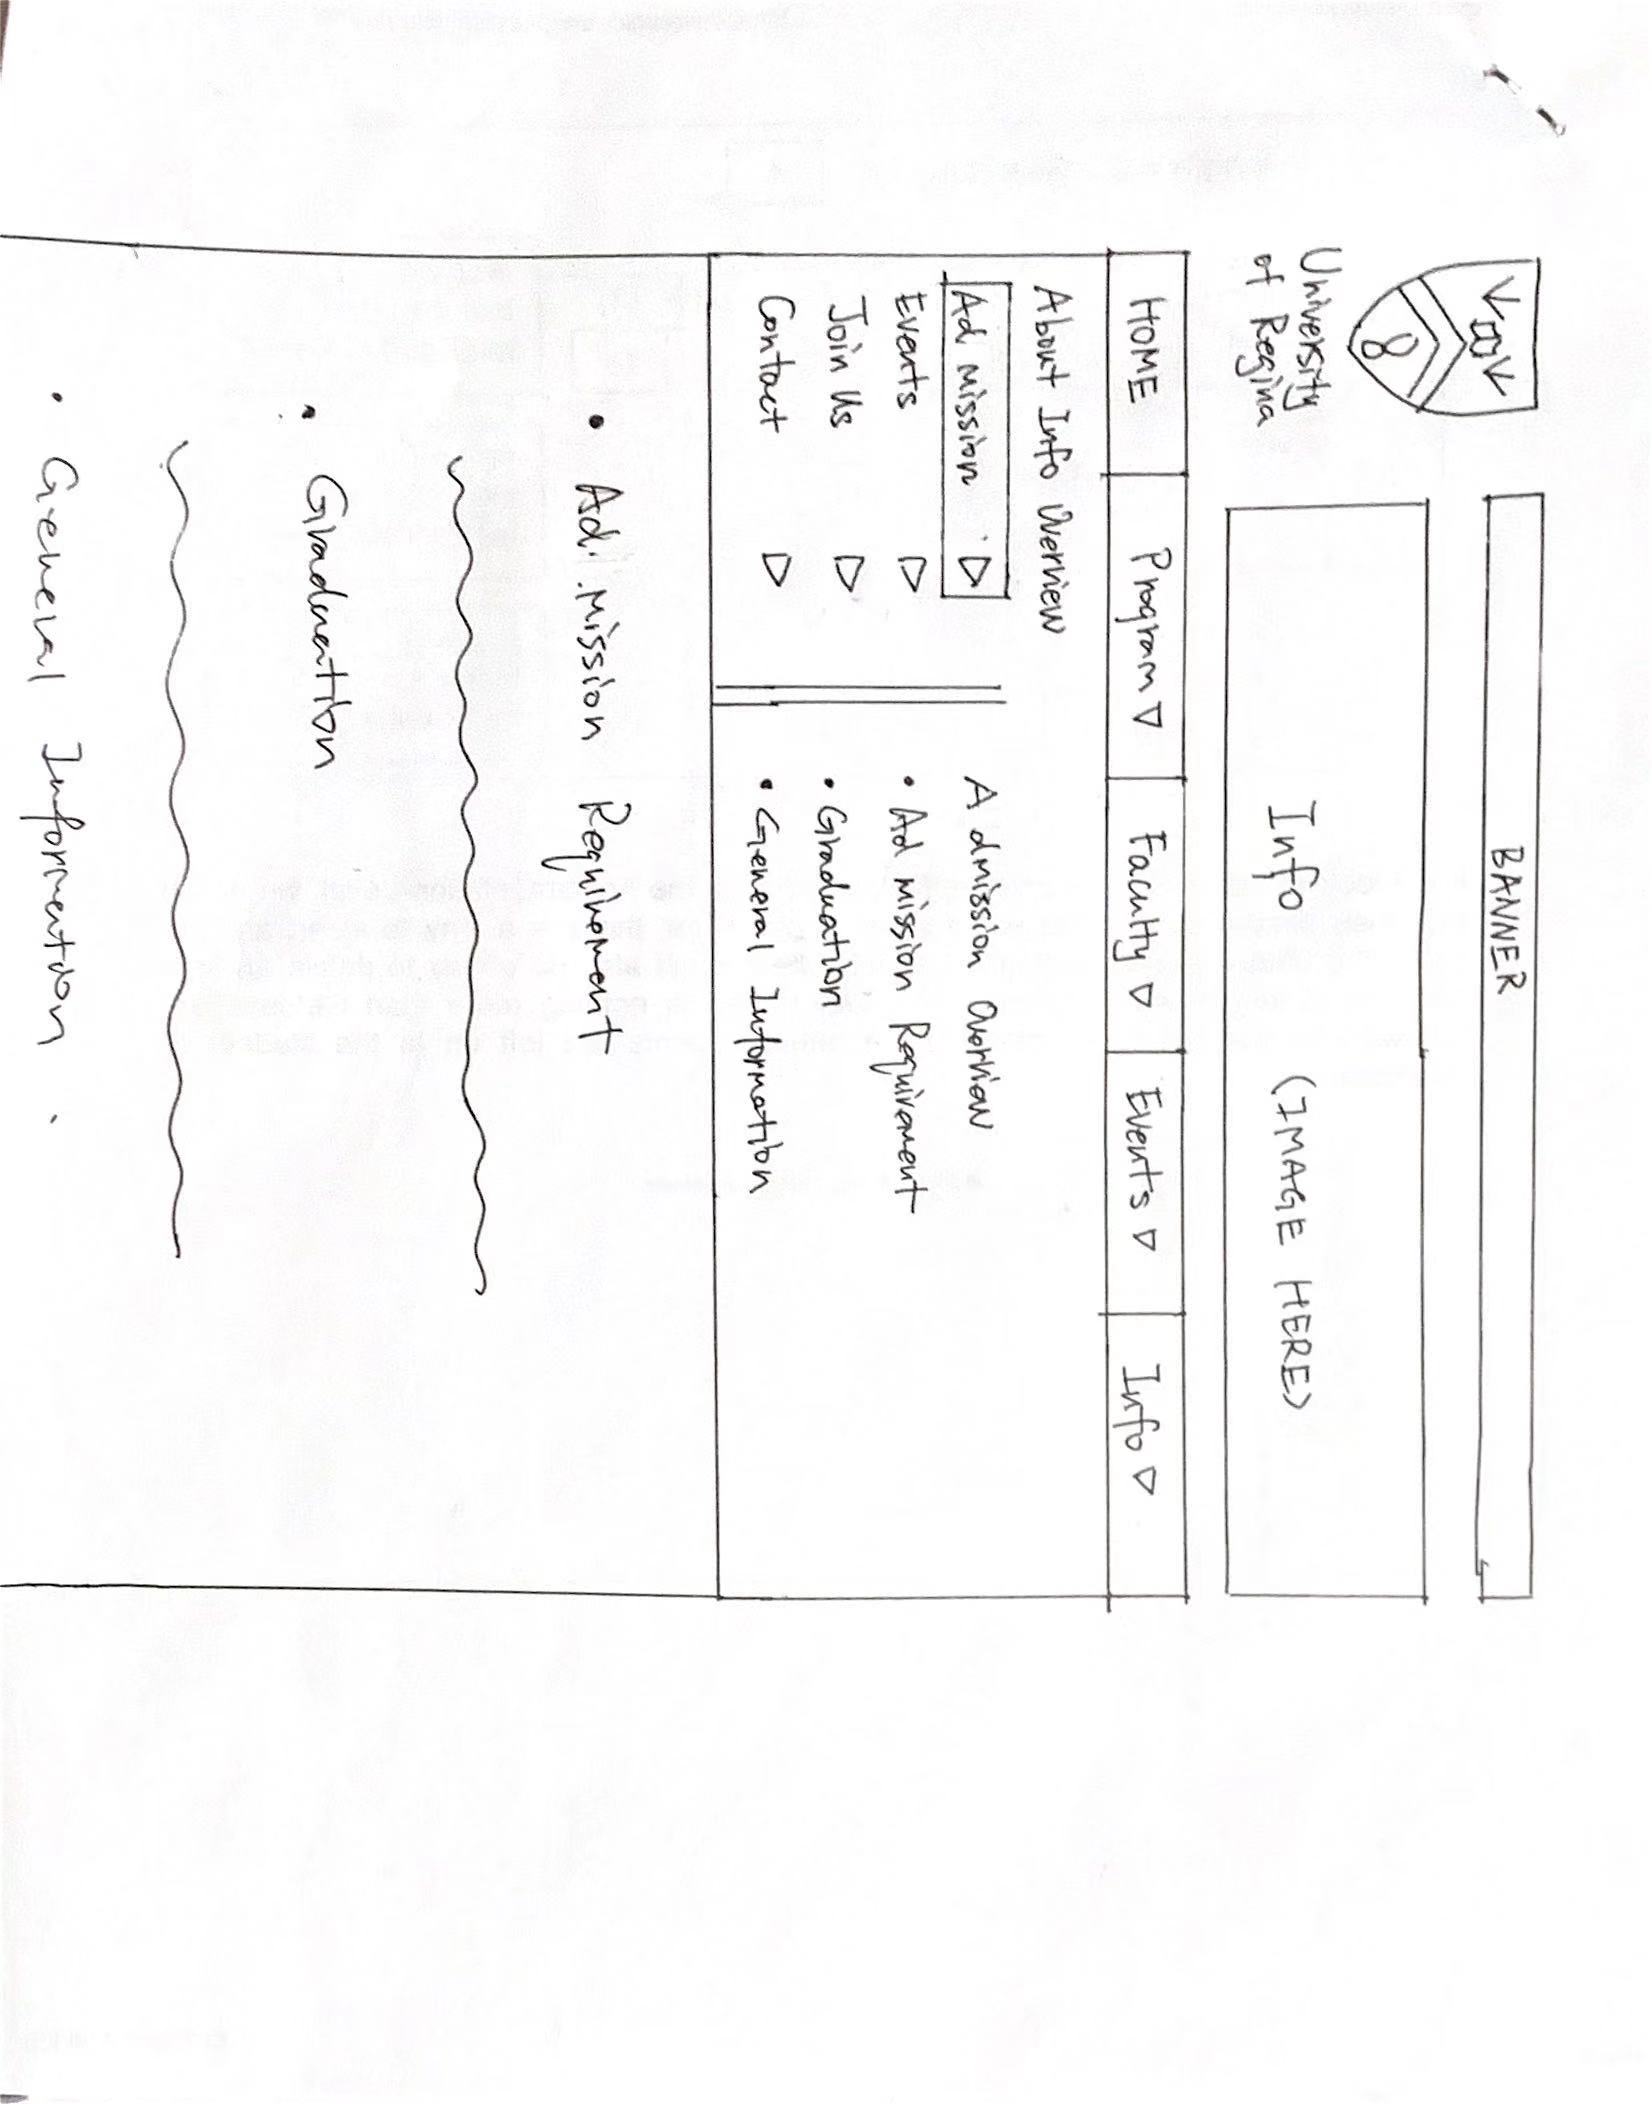 BANNER
University
of Regina
Info (IMAGE HERE)
HOME Program Faculty Events Info
About Info Overview
Admission
Events
Join Us
Contact
Admission Overview
• Admission Requirement
• Graduation
• General Information
• Admission Requirement
• Graduation
• General Information